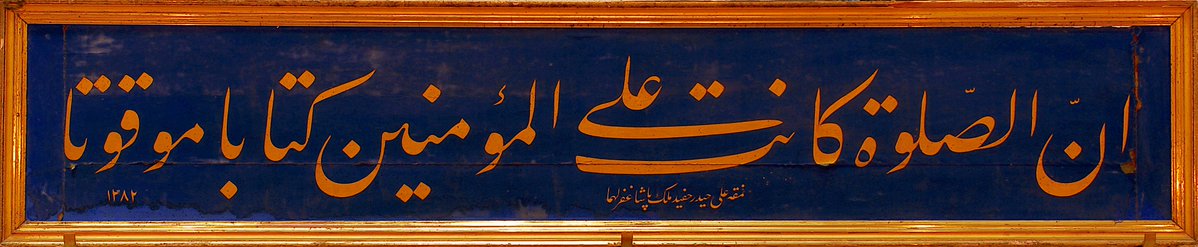 ان الصّلوة كانت على المؤمنين كتابا موقوتا
نمقه علی حیدر حفید ملک پاشا غفر لهما
١٢٨٢